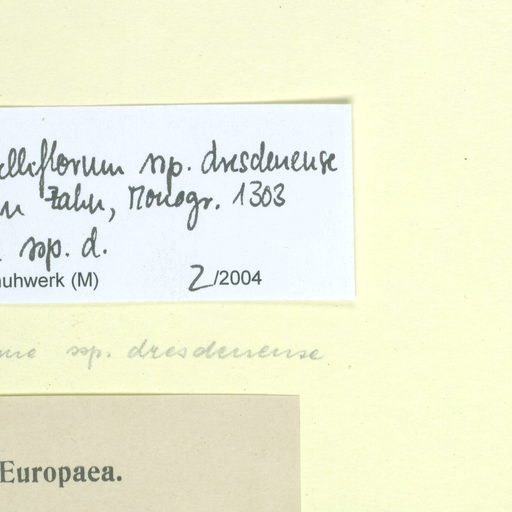 elliflorum ssp. dresdenense
in Zahn, Monogr. 1303
ssp. d.
uhwerk (M) 2/2004
ssp. dresdenense
Europaea.